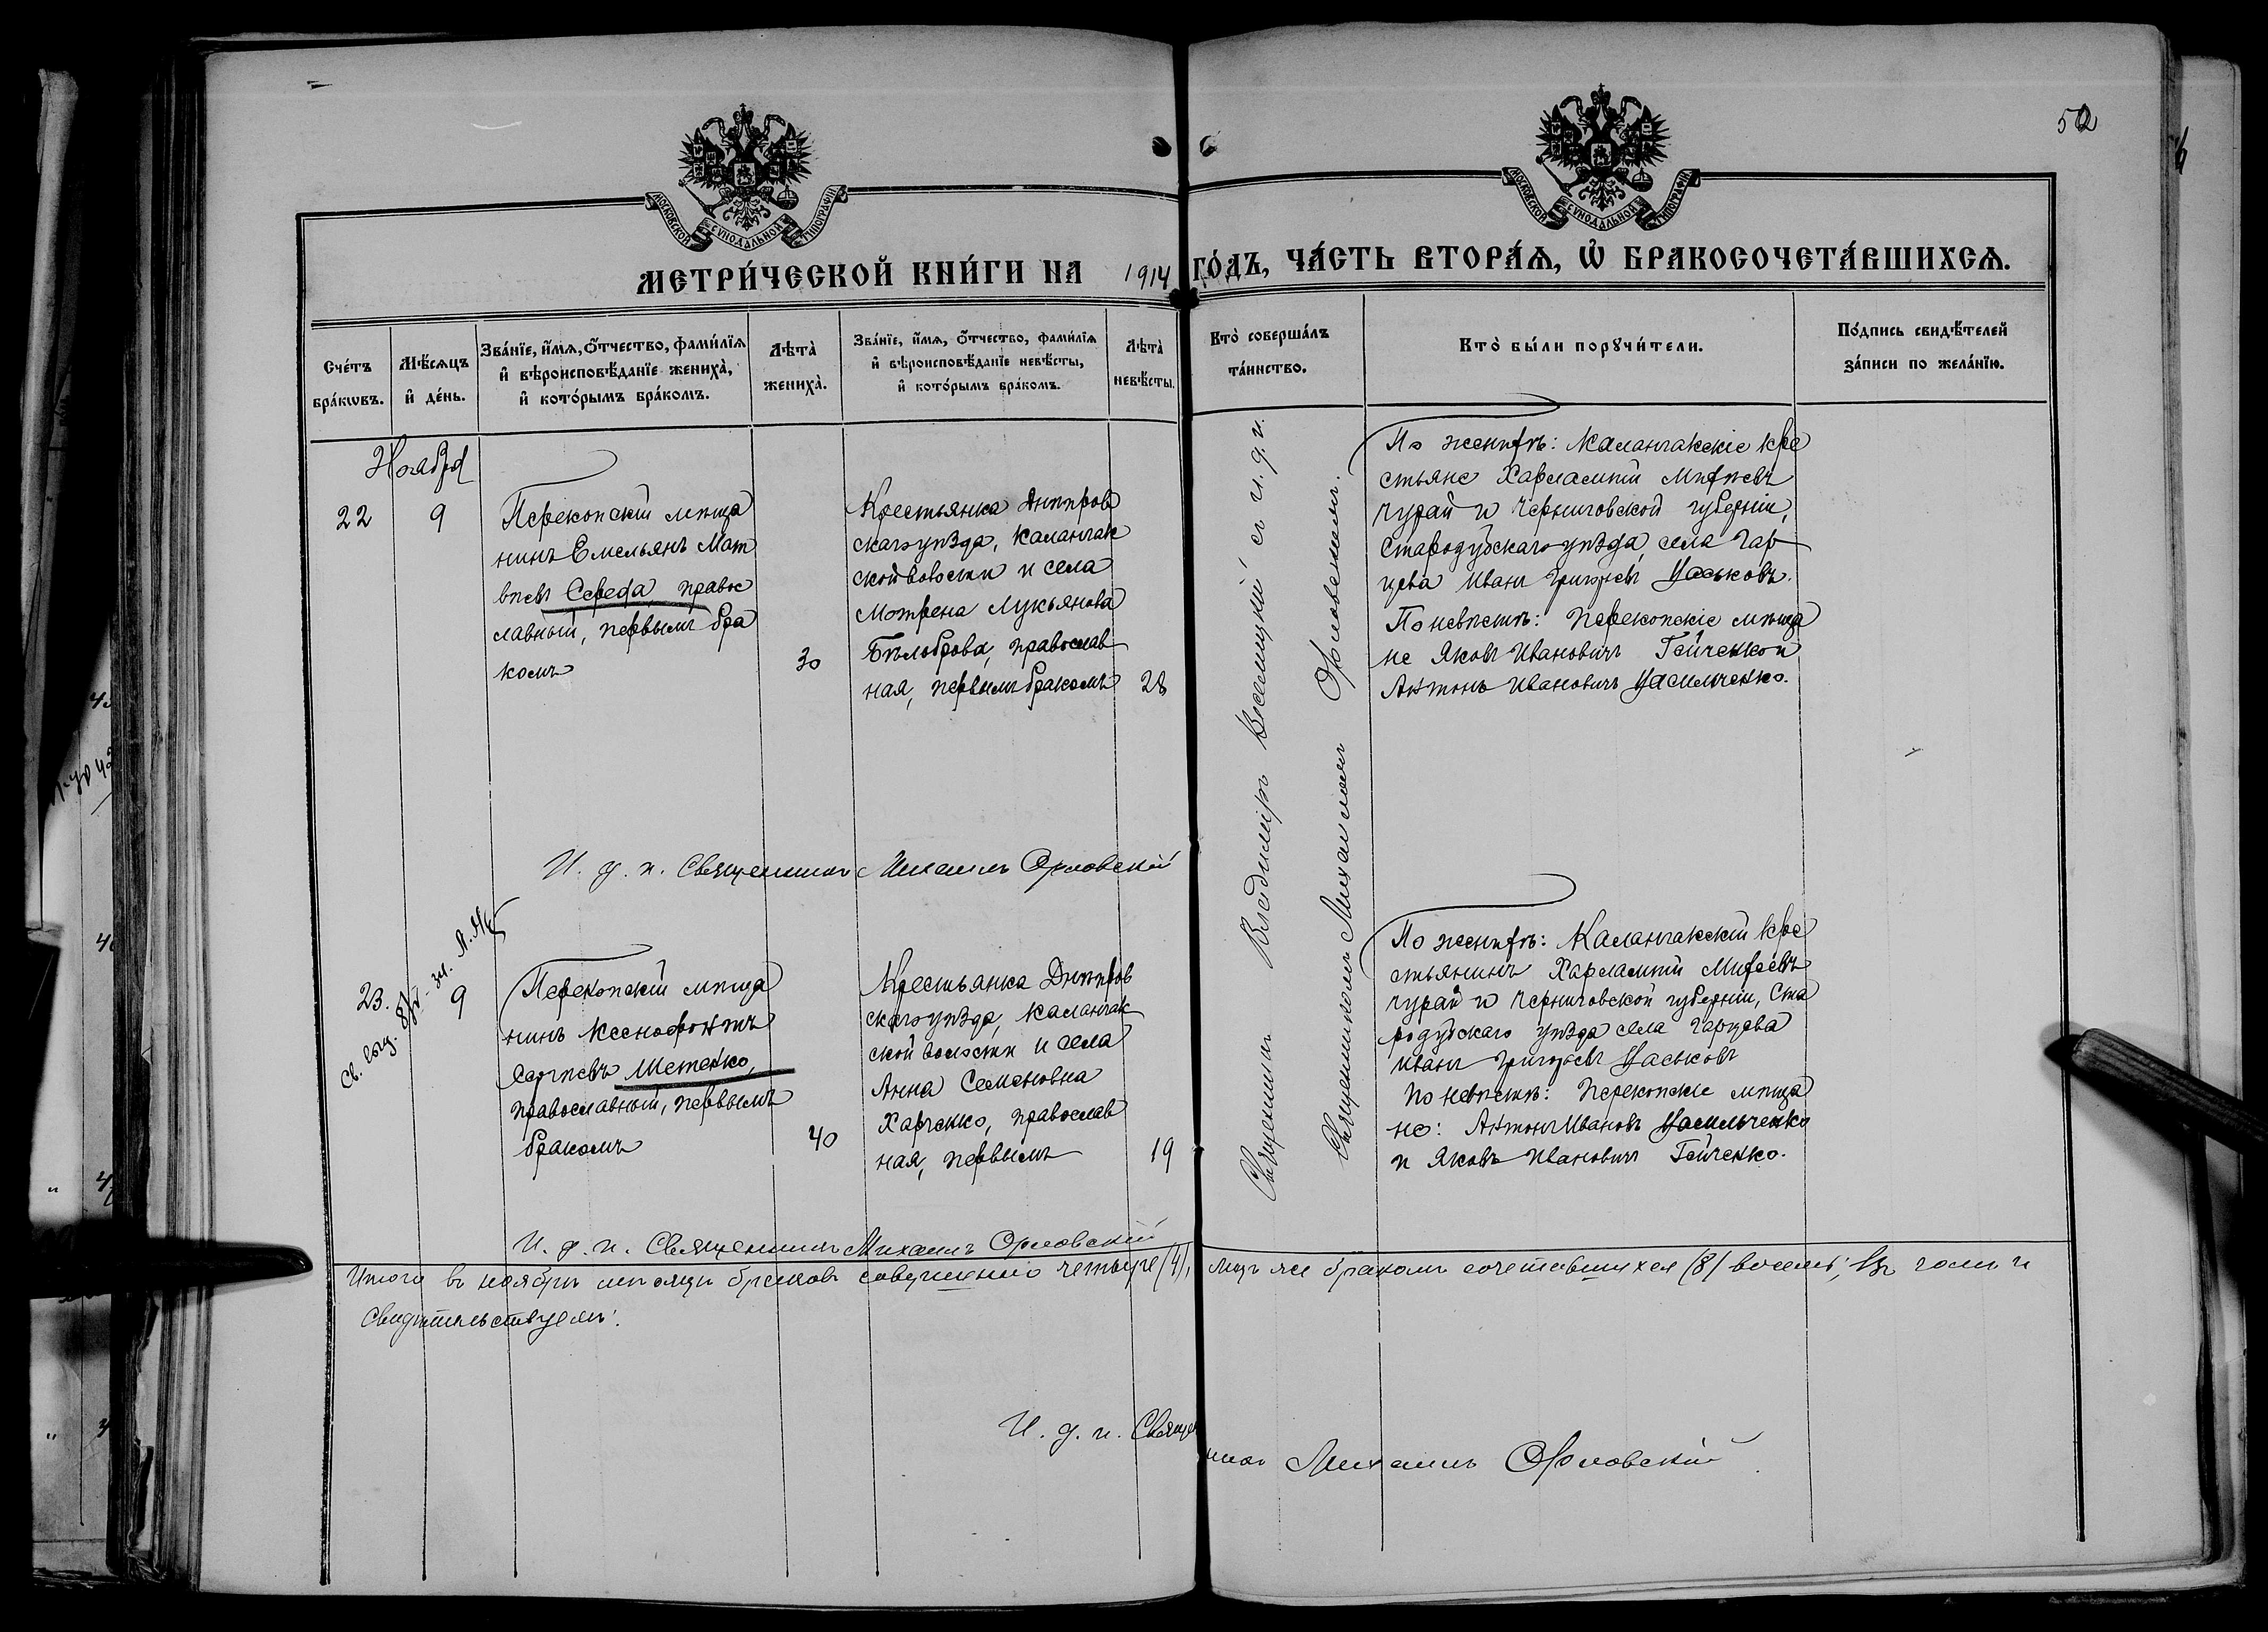 52
МОСКОВСКОЙ СУНОДАЛЬНОЙ ТИПОГРАФІИ
МОСКОВСКОЙ СУНОДАЛЬНОЙ ТИПОГРАФІИ
МЕТРИ́ЧЕСКОЙ КНИ́ГИ НА 1914 ГО́ДЪ, ЧА́СТЬ ВТОРА́Ѧ, Ѽ БРАКОСОЧЕТА́ВШИХСѦ.
Сче́тъ бра́кѡвъ.
Мѣ́сѧцъ и҆ де́нь.
Зва́нїе, и҆́мѧ, ѻ҆́тчество, фами́лїѧ
и҆ вѣроисповѣ́данїе жениха̀,
и҆ кото́рымъ бра́комъ.
Лѣта̀ жениха̀.
Зва́нїе, и҆́мѧ, ѻ҆́тчество, фами́лїѧ
и҆ вѣроисповѣ́данїе невѣ́сты,
и҆ кото́рымъ бра́комъ.
Лѣта̀ невѣ́сты.
Кто̀ соверша́лъ
та́инство.
Кто̀ бы́ли порꙋчи́тели.
По́дпись свидѣ́телей
за́писи по жела́нїю.
Ноября
22
9
Перекопскій мѣща
нинъ Емельянъ Мат
вѣевъ Середа, правос
лавный, первымъ бра
комъ
30
Крестьянка Днѣпров
скаго уѣзда, Каланчак
ской волости и села
Мотрена Лукьянова
Бѣлоброва, православ
ная, первымъ бракомъ
28
Священникъ Владимиръ Веселицкій съ и. д. п.
Священникомъ Михаиломъ Орловскимъ.
По женихѣ: Каланчакскіе кре
стьяне Харлампій Михѣевъ
Чурай и Черниговской губерніи,
Стародубскаго уѣзда села Гар
цева Иванъ Григорьевъ Уаськовъ.
По невѣстѣ: Перекопскіе мѣща
не Яковъ Ивановичъ Гейченко и
Антонъ Ивановичъ Уасильченко.
И. д. п. Священникъ Михаилъ Орловскій
23.
9
Перекопскій мѣща
нинъ Ксенофонтъ
Сергѣевъ Шетенко,
православный, первымъ
бракомъ
40
Крестьянка Днѣпров
скаго уѣзда, Каланчак
ской волости и села
Анна Семеновна
Харченко, православ
ная, первымъ
19
По женихѣ: Каланчакскій кре
стьянинъ Харлампій Михеевъ
Чурай и Черниговской губерніи, Ста
родубскаго уѣзда села Гарцева
Иванъ Григорьевъ Уаськовъ
По невѣстѣ: Перекопскіе мѣща
не: Антонъ Ивановъ Уасильченко
и Яковъ Ивановичъ Гейченко.
И. д. п. Священникъ Михаилъ Орловскій
Итого въ ноябрѣ мѣсяцѣ браковъ совершено четыре (4), лицъ же бракомъ сочетавшихся (8) восемь; въ чемъ и
свидѣтельствуемъ:
И. д. п. Священникъ Михаилъ Орловскій